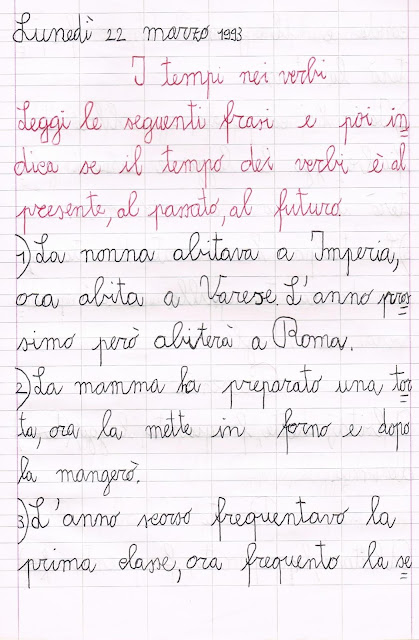 Lunedì 22 marzo 1993
I tempi nei verbi
Leggi le seguenti frasi e poi in=
dica se il tempo dei verbi è al
presente, al passato, al futuro.
1) La nonna abitava a Imperia,
ora abita a Varese. L'anno pros=
simo però abiterà a Roma.
2) La mamma ha preparato una tor=
ta, ora la mette in forno e dopo
la mangerò.
3) L'anno scorso frequentavo la
prima classe, ora frequento la se=